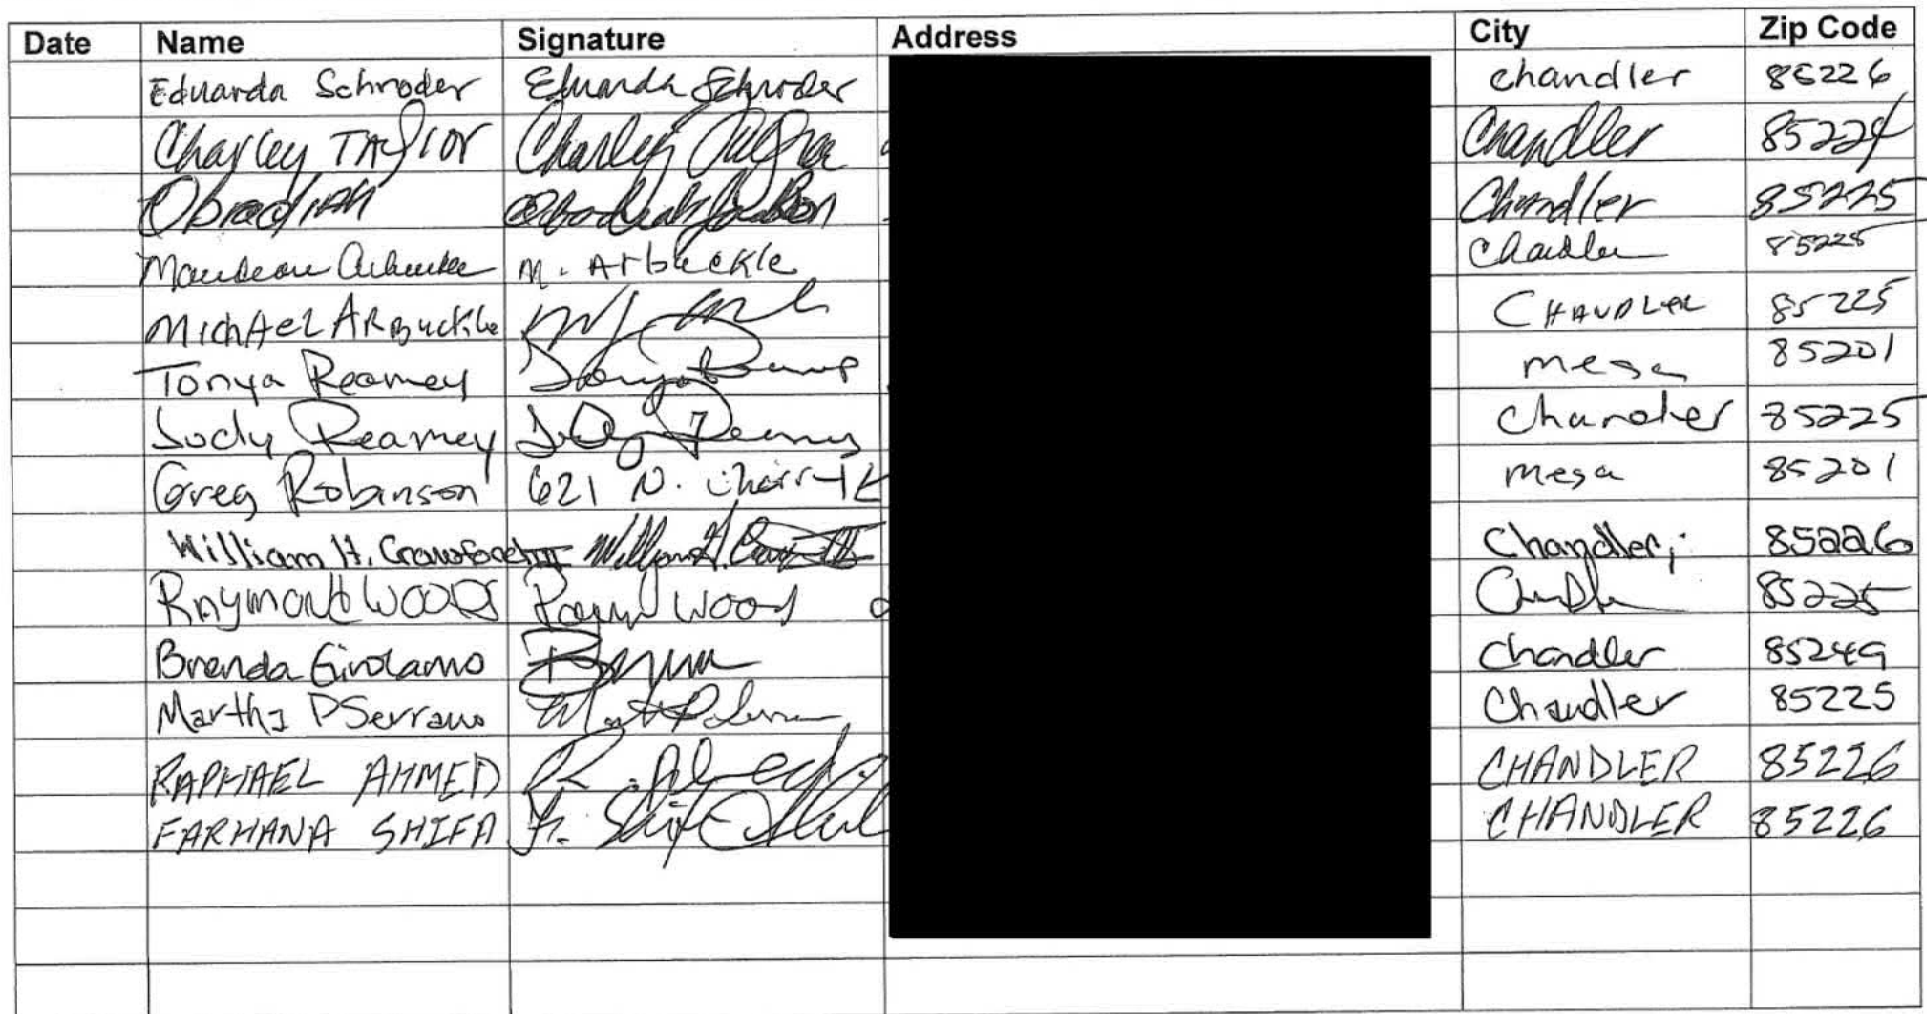 Date Name Signature Address City Zip Code
Eduarda Schroder Eduarda Schroder chandler 85226
Charley TAylor Charley Taylor Chandler 85224
Obadiah Obadiah Chandler 85225
M. Arbuckle Chandler 85225
MichAel ARBuckle CHANDLER 85225
Tonya Reamey mesa 85201
Judy Reamey Chandler 85225
Greg Robinson 621 N. mesa 85201
William H. Crawford III William H. Chandler, 85226
RAymond WOODS Chandler 85225
Brenda Girolamo Chandler 85249
Martha P Serrano Chandler 85225
RAPHAEL AHMED R. CHANDLER 85226
FARHANA SHIFA F. CHANDLER 85226